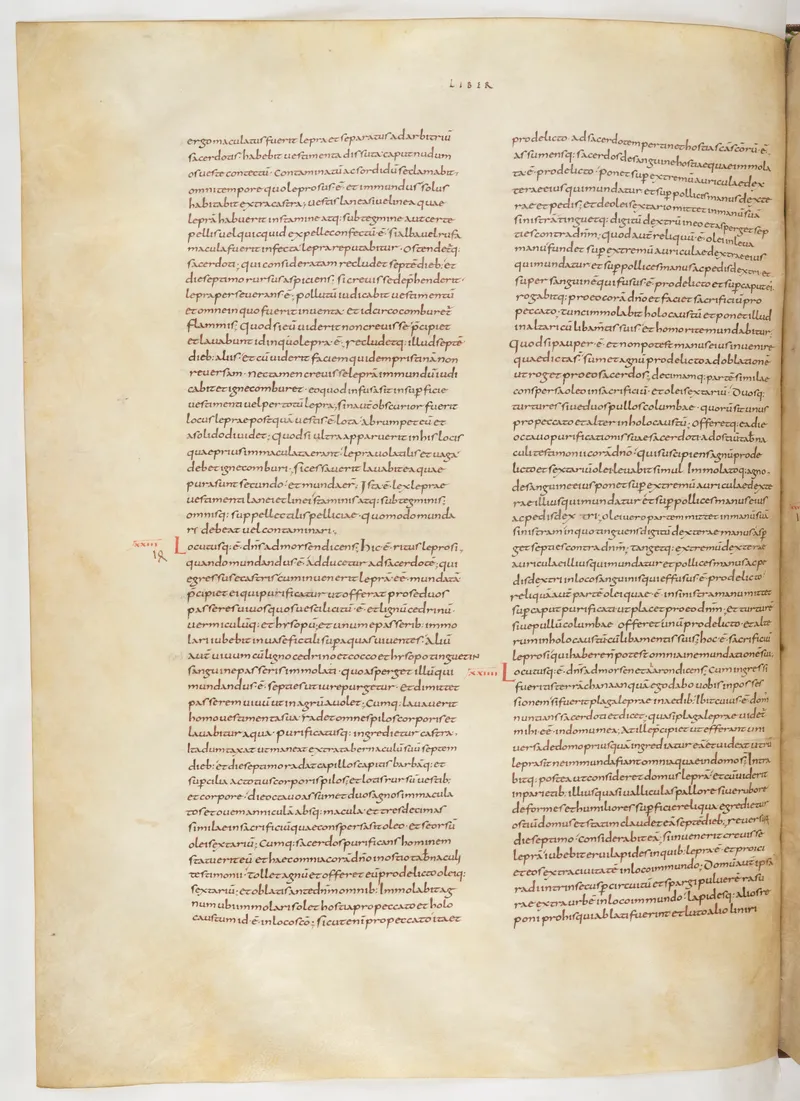 LIBER
ergo maculatus fuerit lepra et separatus ad arbitriū
sacerdotis habebit uestimenta dissuta caput nudum
os ueste contectū contaminatū ac sordidū se clamabit;
omni tempore quo leprosus ē et inmundus solus
habitabit extra castra; uestis lanea siue linea quae
leprā habuerit in stamine atq: subtegmine aut certe
pellis uel quicquid ex pelle confectū ē si alba uel rufa
macula fuerit infecta lepra reputabitur ostendetq:
sacerdoti; qui consideratam recludet septē dieb: et
die septimo rursus aspiciens si creuisse dephenderit
lepra perseuerans ē; pollutū iudicabit uestimentū
et omne in quo fuerit inuenta et idcirco comburet̃
flammis; quod si eū uiderit non creuisse p̄cipiet
et lauabunt id in quo lepra ē; recludetq: illud septē
dieb: aliis et cū uiderit faciem quidem pristinā non
reuersam nec tamen creuisse leprā inmundū iudi
cabit et igne comburet eo quod infusa sit in supficie
uestimenti uel per totū lepra; sin aut̄ obscurior fuerit
locus leprae postquā uestis ē lota abrumpet eū et
a solido diuidet; quod si ultra apparuerit in his locis
quae prius inmaculata erant lepra uolatilis et uaga
debet igne comburi; si cessauerit lauabit ea quae
pura sunt secundo et munda erit; ista ē lex leprae
uestimenti lanei et linei staminis atq: subtegminis;
omnisq: suppellectilis pelliciae quomodo munda
ri debeat uel contaminari;
XXIII Locutusq: ē dn̄s ad morsen dicens; hic ē ritus leprosi,
quando mundandus ē Adducetur ad sacerdotē; qui
egressus e castris cum inuenerit leprā eē mundatā
p̄cipiet ei qui purificatur ut offerat pro se duos
passeres uiuos quos uesci licitū ē et lignū cedrinū
uermiculūq: et hysopū; et unum e passerib: immo
lari iubebit in uase fictili sup aquas uiuentes Aliū
aut̄ uiuum cū ligno cedrino et cocco et hysopo tinguet in
sanguine passeris immolati quo asperget illū qui
mundandus ē septies ut iure purgetur et dimittet
passerem uiuū ut in agrū auolet; Cumq: lauauerit
homo uestimenta sua radet omnes pilos corporis et
lauabitur aqua purificatusq: ingredietur castra,
Ita dumtaxat ut maneat extra tabernaculū suū septem
dieb: et die septimo radat capillos capitis barbāq: et
supcilia ac totius corporis pilos; et lotis rursū uestib:
et corpore die octauo assumet duos agnos inmacula
tos et ouem anniculā absq: macula et tres decimas
similae in sacrificiū quae conspersa sit oleo et seorsū
olei sextariū; Cumq: sacerdos purificans hominem
statuerit eū et haec omnia corā dn̄o in ostio tab̄naculi
testimonii tollet agnū et offeret eū pro delicto oleiq:
sextariū; et oblatis ante dn̄m omnib: Immolabit ag
num ubi immolari solet hostia pro peccato et holo
caustum id ē in loco scō; sicut enī pro peccato ita et
pro delicto ad sacerdotem pertinet hostia scā scōrū ē.
Assumensq: sacerdos de sanguine hostiae quae immola
ta ē pro delicto ponet sup extremū auriculae dex
terae eius qui mundatur et sup pollices manus dexte
rae et pedis; et de olei sextario mittet in manū suā
sinistrā tinguetq: digitū dextrū in eo et asperget sep
ties contra dn̄m; quod aut̄ reliquū ē olei in leua
manu fundet sup extremū auriculae dextrae eius
qui mundatur et sup pollices manus ac pedis dextri et
super sanguinē qui fusus ē pro delicto et sup caput ei;
rogabitq: pro eo corā dn̄o et faciet sacrificiū pro
peccato; tunc immolabit holocaustū et ponet illud
in altari cū libamtis suis et homo rite mundabitur;
Quod si pauper ē et non potest manus eius inuenire
quae dicta s̄ sumet agnū pro delicto ad oblationē
ut roget pro eo sacerdos; decimamq: partē similae
conspersa oleo in sacrificiū et olei sextariū Duosq:
turtures siue duos pullos columbae quorū sit unus
pro peccato et alter in holocaustū; offeretq: ea die
octauo purificationis suae sacerdoti ad ostiū tab̄na
culi testimonii corā dn̄o qui suscipiens agnū pro de
licto et sextariū olei leuabit simul Immolatoq: agno
de sanguine eius ponet sup extremū auriculae dexte
rae illius qui mundatur et sup pollices manus eius
ac pedis dextri; olei uero partem mittet in manū suā
sinistram in quo tinguens digitū dexterae manus asp
get septies contra dn̄m; tangetq: extremū dexterae
auriculae illius qui mundatur et sup pollices manus ac pe
dis dextri in loco sanguinis qui effusus ē pro delicto
reliquā aut̄ partē olei quae ē in sinistra manu mittet
sup caput purificati ut placet pro eo dn̄m; et turturē
siue pullū columbae offeret unū pro delicto et alte
rum in holocaustū cū libamentis suis; hoc ē sacrificiū
leprosi qui habere n̄ potest omnia in emundationē sui.
XXIIII Locutusq: ē dn̄s ad morsen et aaron dicens; Cum ingressi
fueritis terrā chanaan quā ego dabo uobis in posses
sionem si fuerit plaga leprae in aedib: Ibit cuius ē dom̄
nuntians sacerdoti et dicet; quasi plaga leprae uidet̃
mihi eē in domu mea; At ille p̄cipiet ut efferant uni
uersa de domo priusquā ingrediatur eā et uideat utrū
leprasit ne inmunda fiant omnia quae in domo s̄; Intra
bitq: postea ut consideret domus leprā et cū uiderit
in parietib: illius quasi ualliculas pallore siue rubore
deformes et humiliores supficie reliqua egredietur
ostiū domus et statim claudet eā septē dieb; reuersusq;
die septimo considerabit eā; si inuenerit creuisse
leprā iubebit erui lapides in quib: lepra ē et proici
eos extra ciuitatē in loco inmundo; Domū aut̄ ipsā
radi intrinsecus p circuitū et spargi puluerē rasu
rae extra urbē in loco inmundo lapidesq: alios re
poni pro his qui ablati fuerint et luto alio liniri